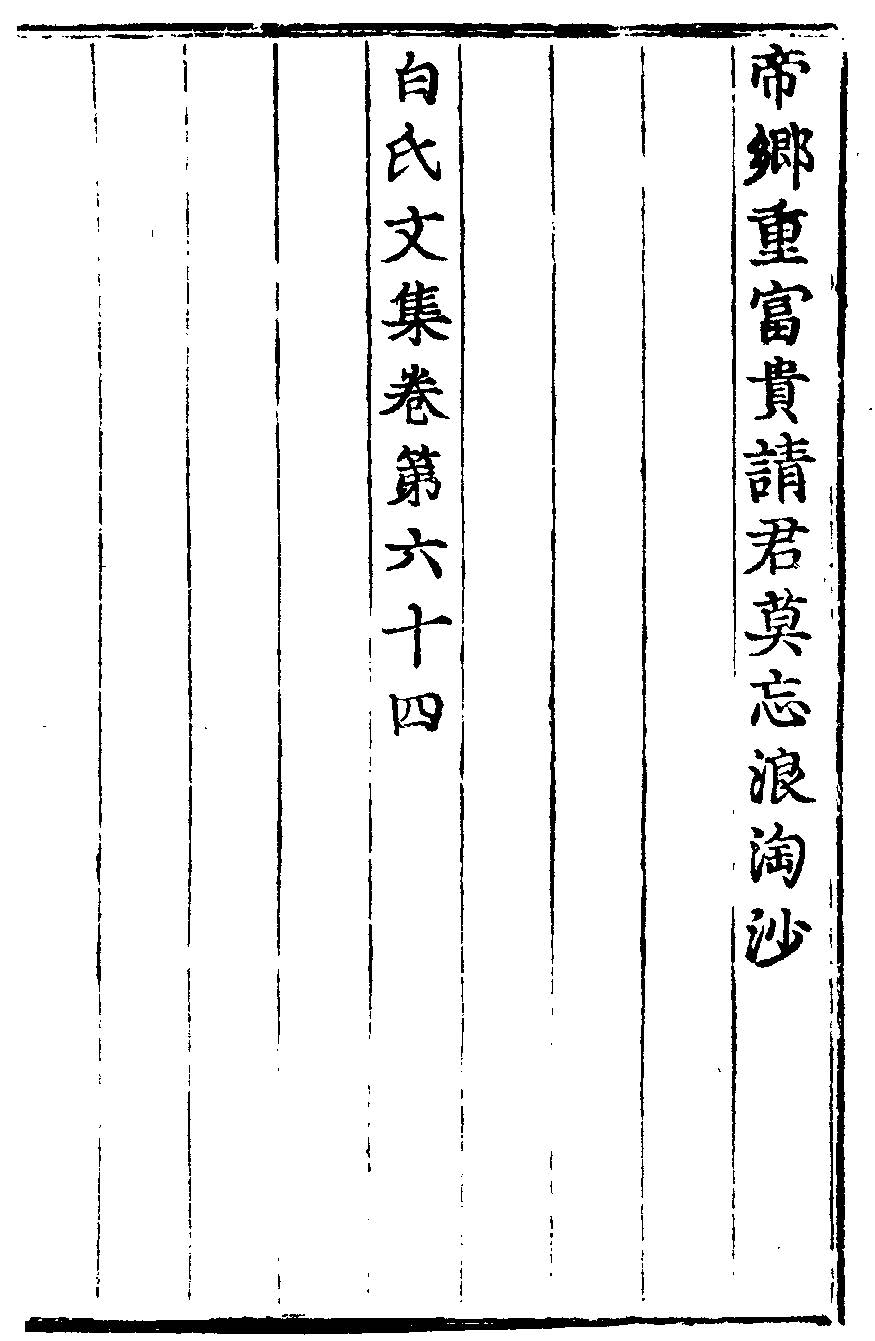 帝鄉重富貴請君莫忘浪淘沙
白氏文集卷第六十四